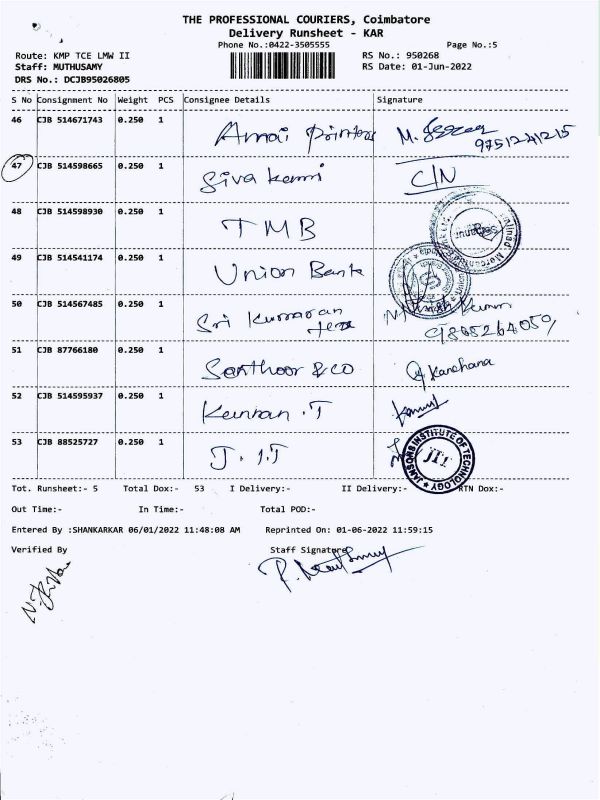 THE PROFESSIONAL COURIERS, Coimbatore
Delivery Runsheet - KAR
Phone No.:0422-3505555 Page No.:5
Route: KMP TCE LMW II RS No.: 950268
Staff: MUTHUSAMY RS Date: 01-Jun-2022
DRS No.: DCJB95026805
S No Consignment No Weight PCS Consignee Details Signature
46 CJB 514671743 0.250 1 Amai Printers 9751241215
47 CJB 514598665 0.250 1 Siva C/N
48 CJB 514598930 0.250 1 TMB
49 CJB 514541174 0.250 1 Union Bank
50 CJB 514567485 0.250 1 Sri Kumaran
51 CJB 87766180 0.250 1 Santhoor & co Kanchana
52 CJB 514595937 0.250 1
53 CJB 88525727 0.250 1 J.I.T JANSONS INSTITUTE OF TECHNOLOGY JIT
Tot. Runsheet:- 5 Total Dox:- 53 I Delivery:- II Delivery:- RTN Dox:-
Out Time:- In Time:- Total POD:-
Entered By :SHANKARKAR 06/01/2022 11:48:08 AM Reprinted On: 01-06-2022 11:59:15
Verified By Staff Signature